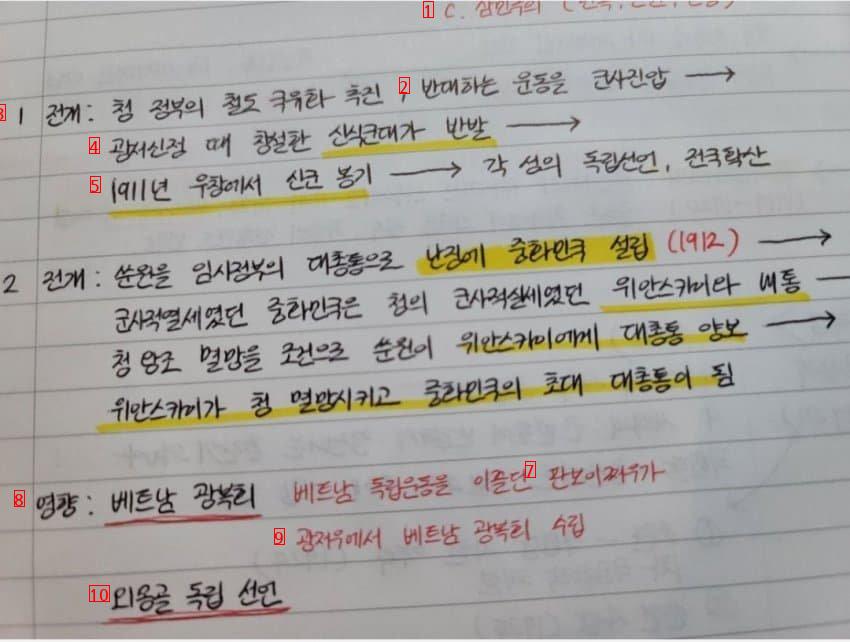 C. 삼민주의 (민족, 민권, 민생)
1 전개: 청 정부의 철도 국유화 추진, 반대하는 운동을 군사진압 →
광저신정 때 창설한 신식군대가 반발 →
1911년 우창에서 신군 봉기 → 각 성의 독립선언, 전국확산
2 전개: 쑨원을 임시정부의 대총통으로 난징에 중화민국 설립 (1912) →
군사적열세였던 중화민국은 청의 군사적실세였던 위안스카이와 내통 —
청 왕조 멸망을 조건으로 쑨원이 위안스카이에게 대총통 양보 →
위안스카이가 청 멸망시키고 중화민국의 초대 대총통이 됨
영향: 베트남 광복회 베트남 독립운동을 이끌던 판보이쩌우가
광저우에서 베트남 광복회 수립
외몽골 독립 선언